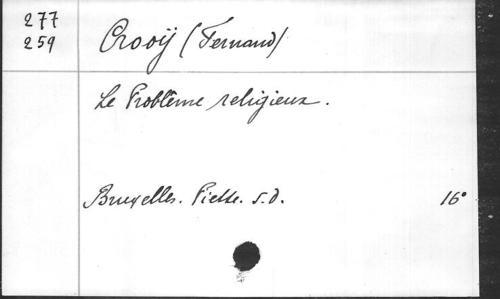 277
259
Crooÿ (Fernand)
Le Problème religieux.
Bruxelles. Piette. s.d. 16°